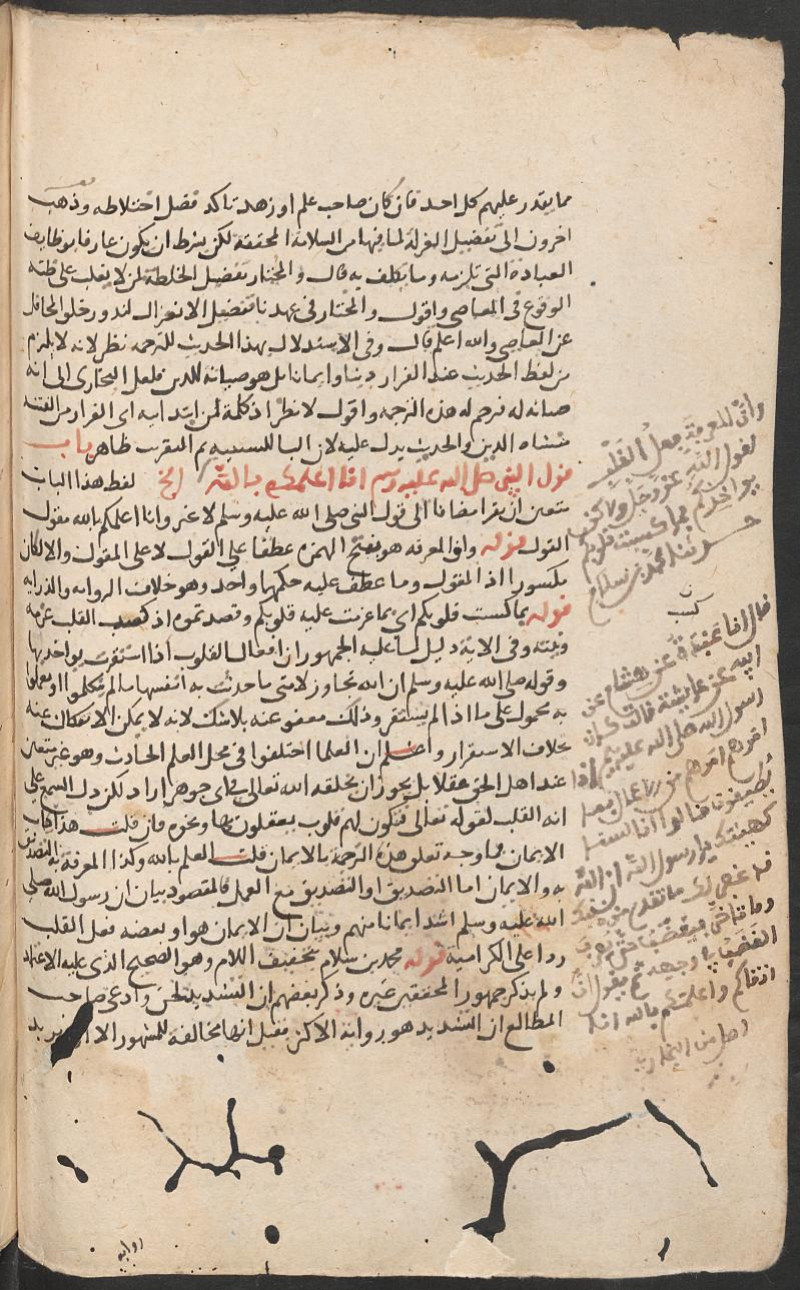 مما يقدر عليهم كل احد فان كان صاحب علم او زهد تاكد فضل اختلاطه وذهب
اخرون الى تفضيل العزلة لما فيها من السلامة المحققة لكن بشرط ان يكون عارفا بوظايف
العبادة التى تلزمه وما يكلف به قال والمختار تفضيل الخلطة لمن لا يغلب على ظنه
الوقوع فى المعاصى واقول والمختار فى عهدنا تفضيل الانعزال لندور خلو المحافل
عن المعاصى والله اعلم قال وفى الاستدلال بهذا الحديث للترجمه نظر لانه لا يلزم
من لفظ الحديث عد الفرار دينا وايمانا بل هو صيانة للدين فلعل البخارى لما راى انه
صيانه له ترجم له هذه الترجمه واقول لا نظر اذ كلمة لمن ابتدائيه اى الفرار من الفتنة
منشاه الدين والحديث يدل عليه لان البا للسببيه ثم التقريب ظاهر باب
قول النبى صلى الله عليه وسلم انا اعلمكم بالله الخ لفظ هذا الباب
متعين ان يقرا مضافا الى قول النبى صلى الله عليه وسلم لا غير وانا اعلمكم بالله مقول
القول قوله وان المعرفه هو بفتح الهمزه عطفا على القول لا على المقول والا لكان
مكسورا اذ المقول وما عطف عليه حكمهما واحد وهو خلاف الروايه والدرايه
قوله بما كسبت قلوبكم اى بما عزمت عليه قلوبكم وقصدتموه اذ كسب القلب عزمه
ونيته وفى الاية دليل لما عليه الجمهور ان افعال القلوب اذا استقرت يواخذ بها
وقوله صلى الله عليه وسلم ان الله تجاوز لامتى ما حدثت به انفسها ما لم يتكلموا او يعملوا
به محمول على ما اذا لم يستقر وذلك معفو عنه بلا شك لانه لا يمكن الانفكاك عنه
بخلاف الاستقرار واعلم ان العلما اختلفوا فى محل العلم الحادث وهو غير متعين
عند اهل الحق عقلا بل يجوز ان يخلقه الله تعالى فى اى جوهر اراد لكن دل السمع على
انه القلب لقوله تعالى فتكون لهم قلوب يعقلون بها ونحوه فان قلت هذا كتاب
الايمان فما وجه تعلق هذه الترجمة بالايمان قلت العلم بالله وكذا المعرفة به التصديق
به والايمان اما التصديق او التصديق مع العمل فالمقصود بيان ان رسول الله صلى
الله عليه وسلم اشد ايمانا منهم وبيان ان الايمان هو او بعضه فعل القلب
ردا على الكراميه قوله محمد بن سلام بتخفيف اللام وهو الصحيح الذى عليه الاعتماد
ولم يذكر جمهور المحققين غيره وذكر بعضهم ان التشديد لحن وادعى صاحب
المطالع ان التشديد هو رواية الاكثر فقيل انها مخالفة للمشهور الا ان يريد
وان المعرفة فعل القلب
لقول الله عز وجل ولكن
يواخذكم بما كسبت قلوبكم
حدثنا محمد بن سلام
قال انا عبدة عن هشام عن
ابيه عن عايشة قالت كان
رسول الله صلى الله عليه وسلم اذا
امرهم امرهم من الاعمال بما
يطيقون قالوا انا لسنا
كهيئتك يا رسول الله ان الله
قد غفر لك ما تقدم من ذنبك
وما تاخر فيغضب حتى يعرف
الغضب فى وجهه ثم يقول ان
اتقاكم واعلمكم بالله انا
روايه